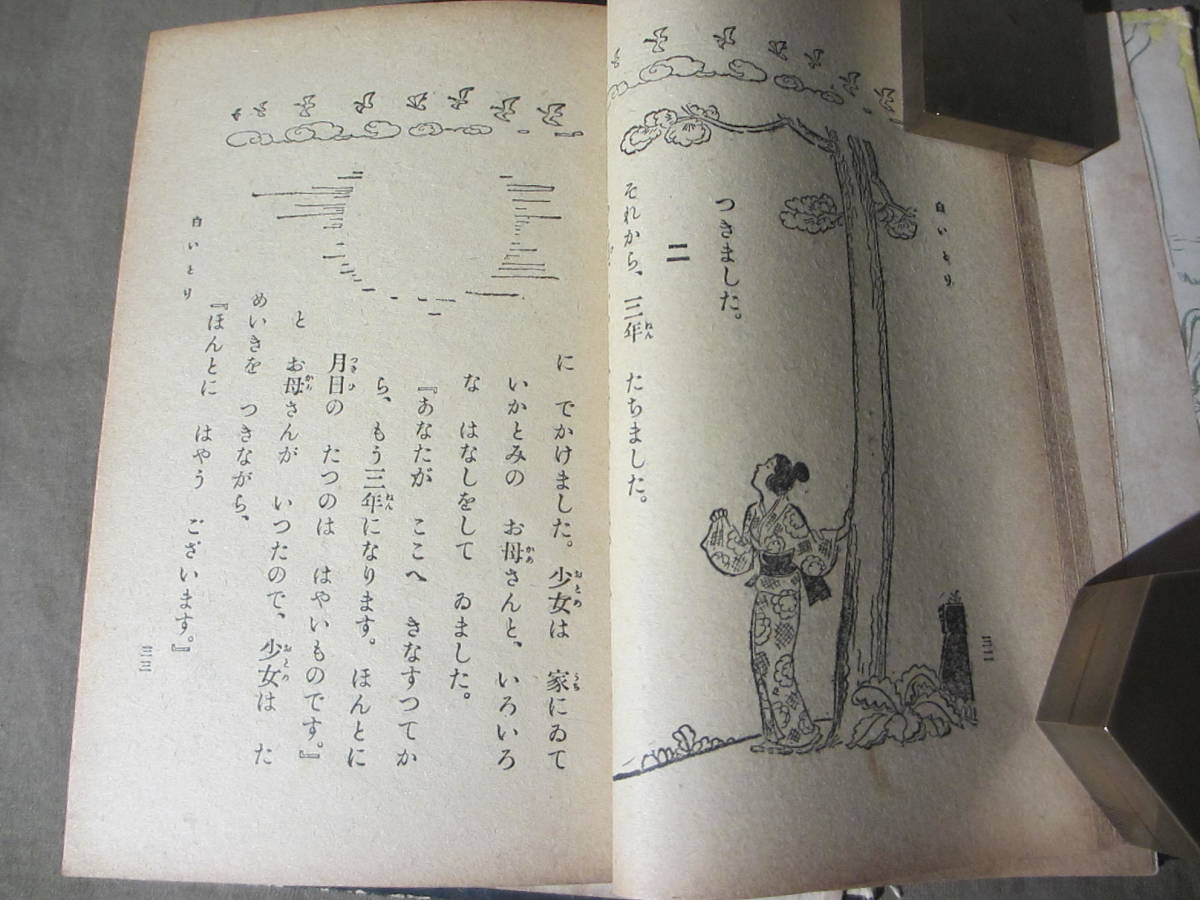 白いとり
つきました。
二
それから、三年 たちました。
三二
に でかけました。少女は 家にゐて
いかとみの お母さんと、いろいろ
な はなしをして ゐました。
『あなたが ここへ きなすつてか
ら、もう三年になります。 ほんとに
月日の たつのは はやいものです。』
と お母さんが いつたので、少女は た
めいきを つきながら、
『ほんとに はやう ございます。』
白いとり
三三